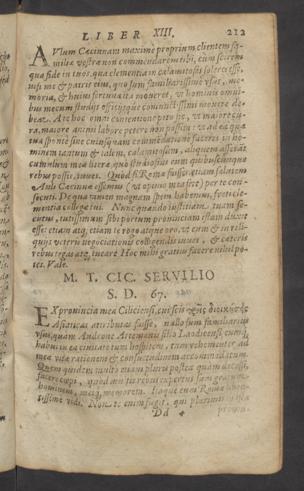 LIBER XIII. 212
AVlum Cæcinnam maximè proprium clientem fa-
miliæ vestræ non commendarem tibi, cum scirem
qua fide in tuos, qua clementia in calamitosos soleres esse,
nisi me & patris eius, quo sum familiarissimè vsus, me-
moria, & huius fortuna ita moueret, vt hominis omni-
bus mecum studijs officijsque coniunctissimi mouere de-
beat. Atque hoc omni contentione peto sic, vt maiore cu-
ra, maiore animi labore petere non possim: vt ad ea quæ
tua sponte sine cuiusquam commendatione faceres in ho-
minem tantum & talem, calamitosum, aliquem afferāt
cumulum meæ literæ, quo studiosius eum quibuscumque
rebus possis, iuues. Quod si Romæ fuisses, etiam salutem
Auli Cæcinnæ essemus (vt opinio mea fert) per te con-
secuti. De qua tamen magnam spem habemus, freti cle-
mentia collegæ tui. Nunc quando iustitiam tuam se-
cutus, tutissimum sibi portum prouinciam istam duxit
esse: etiam atq, etiam te rogo atque oro, vt eum & in reli-
quijs veteris negociationis colligendis iuues, & cæteris
rebus tegas atq, tueare. Hoc mihi gratius facere nihil po-
tes. Vale.
M. T. CIC. SERVILIO
S. D. 67.
EX prouincia mea Ciliciensi, cui scis
Asiaticas attributas fuisse, nullo sum familiarius
vsus, quàm Androne Artemonis filio Laodicensi, eumq́
habui in ea ciuitate tum hospitem, tum vehementer ad
meæ vitæ rationem & consuetudinem accommodatum.
Quem quidem multo etiam pluris postea quàm decessi,
facere cœpi, quòd multis rebus expertus sum gratum
hominem, meiq́ memorem. Itaque eum Romæ liben-
tissimè vidi. Non te enim fugit, qui plurimis in ista
Dd prouin-